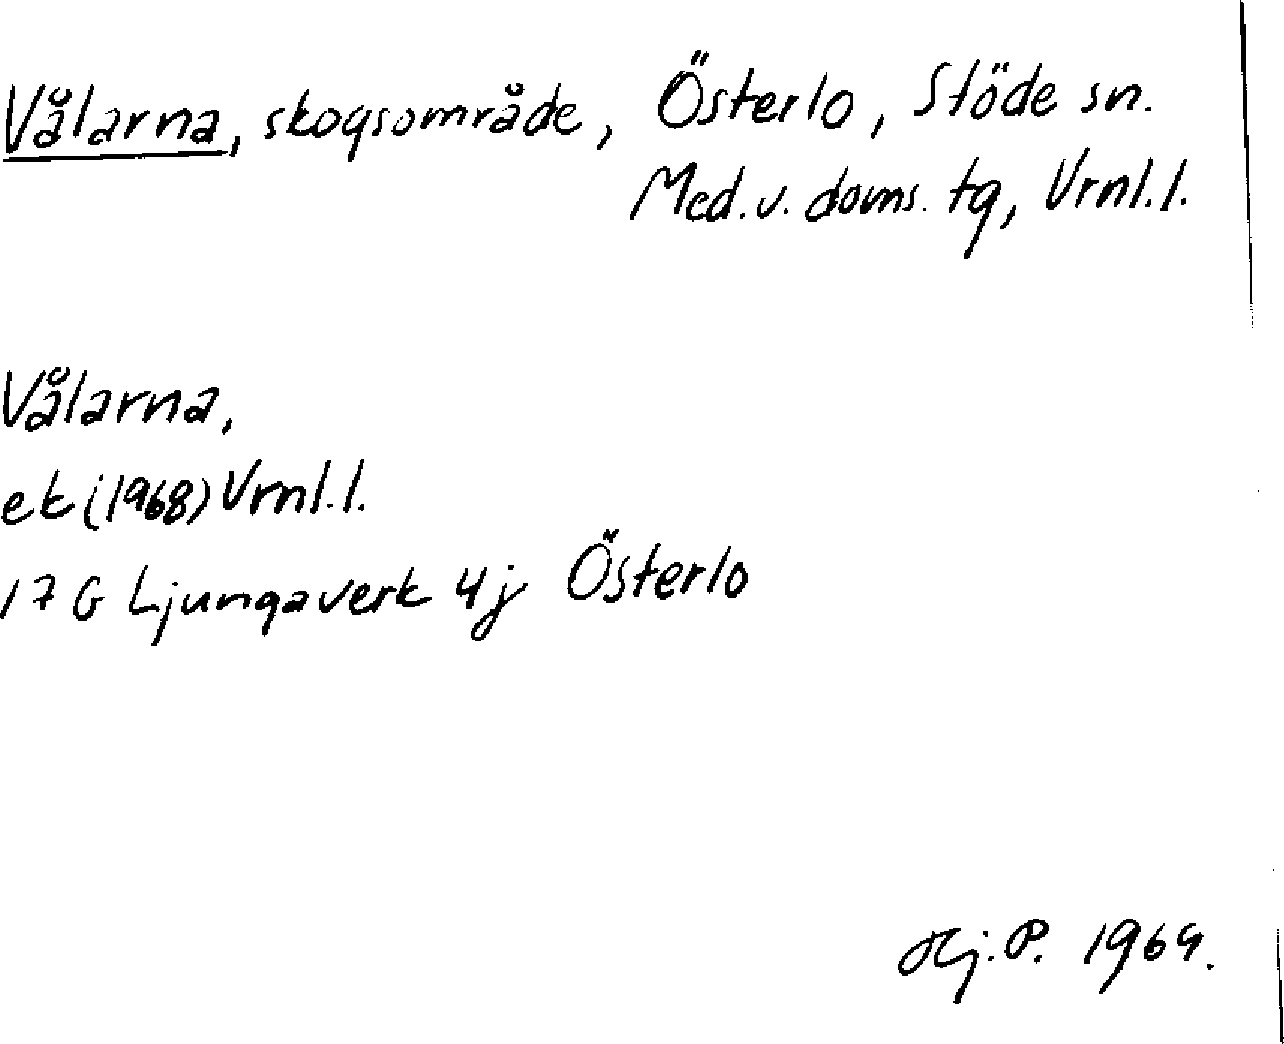 Vålarna, skogsområde, Österlo, Stöde sn.
Med. v. doms. tg, Vrnl. l.
Vålarna,
ek (1968) Vrnl. l.
17 G Ljungaverk 4j Österlo
Hj. P. 1969.